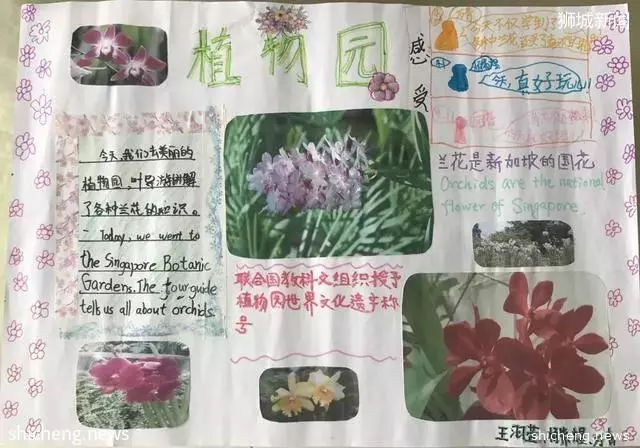 植物园
感受
今天不仅学到了
狮城新闻
哈,真好玩儿
今天,我们去美丽的
植物园,叶导游讲解
了各种兰花的知识。
Today, we went to
the Singapore Botanic
Gardens. The tour guide
tells us all about orchids.
兰花是新加坡的国花
Orchids are the national
flower of Singapore
联合国教科文组织授予
植物园世界文化遗产称
号
shicheng.news
shicheng.news